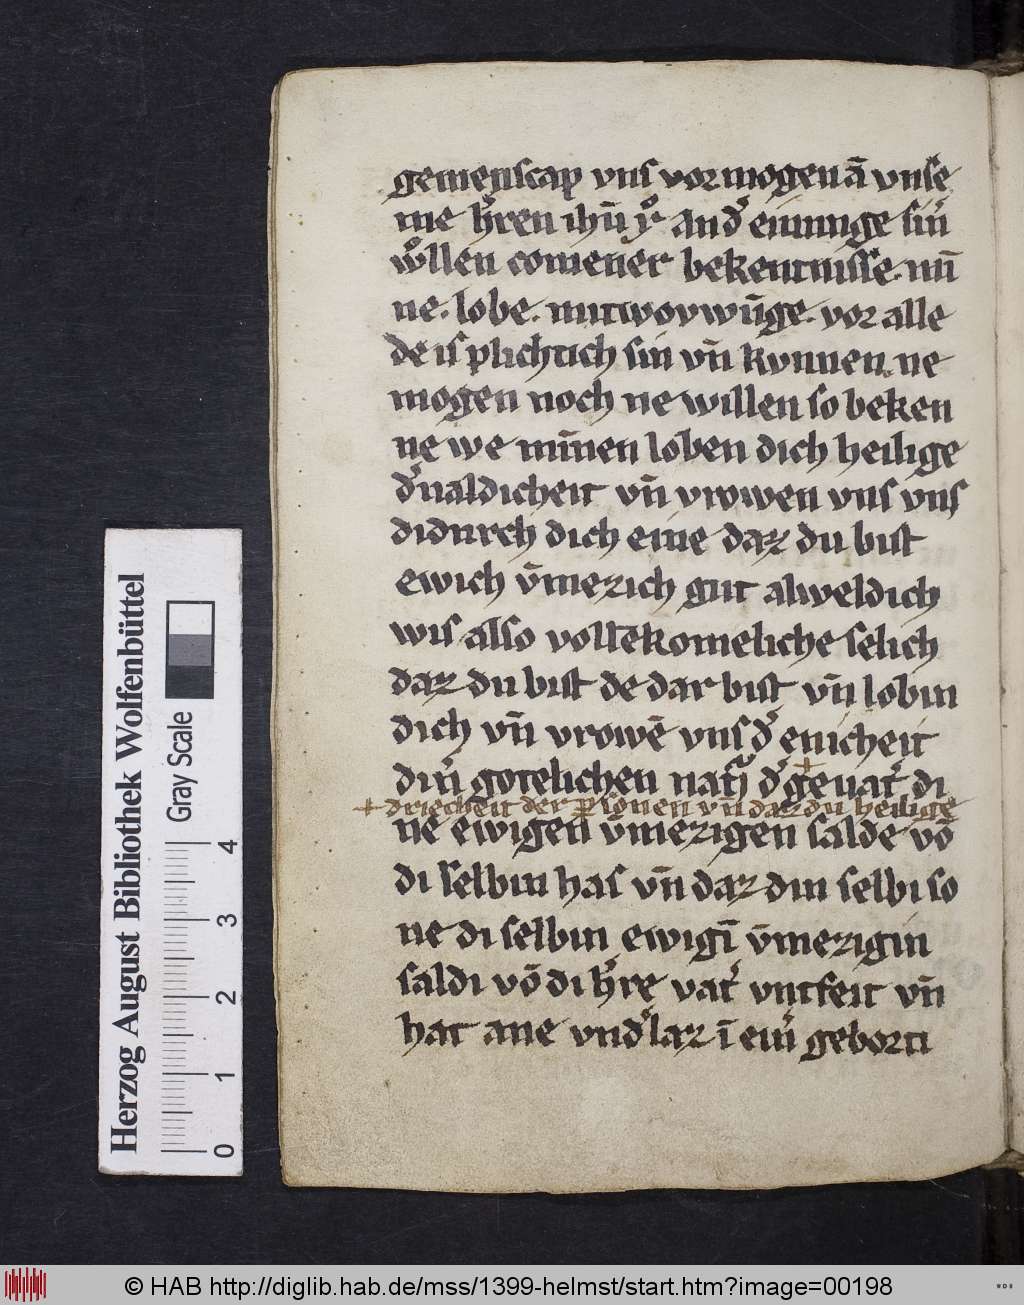 gemeynscap vns vormogen ā vnse
me hr̄en ihū xp̄ an d' einunge sin̄
willen comener bekentnisse. mīn
ne. lobe. mit wov wūge. vor alle
de is plichtich sin vn̄ kvnnen. ne
mogen noch ne willen so beken
ne we minnen loben dich heilige
d'ualdicheit vn̄ vrowen vns vns
di durch dich eine daz du bist
ewich v̄mezich gut alweldich
wis also vollēkomeliche selich
daz du bist de dar bist vn̄ lobin
dich vn̄ vrowē vns d' enicheit
din' gotelichen nat' d' + geuat' di
+ driecheit der p̱sonen vn̄ daz du heilige
ne ewigen v̄mezigen salde vō
di selbin has vn̄ daz din selbi so
ne di selbin ewigī v̄mezigin
saldi vō di h're vat' vntfeit vn̄
hat ane vnd'laz ī ein' geborti
Herzog August Bibliothek Wolfenbüttel
Gray Scale
0 1 2 3 4
© HAB http://diglib.hab.de/mss/1399-helmst/start.htm?image=00198